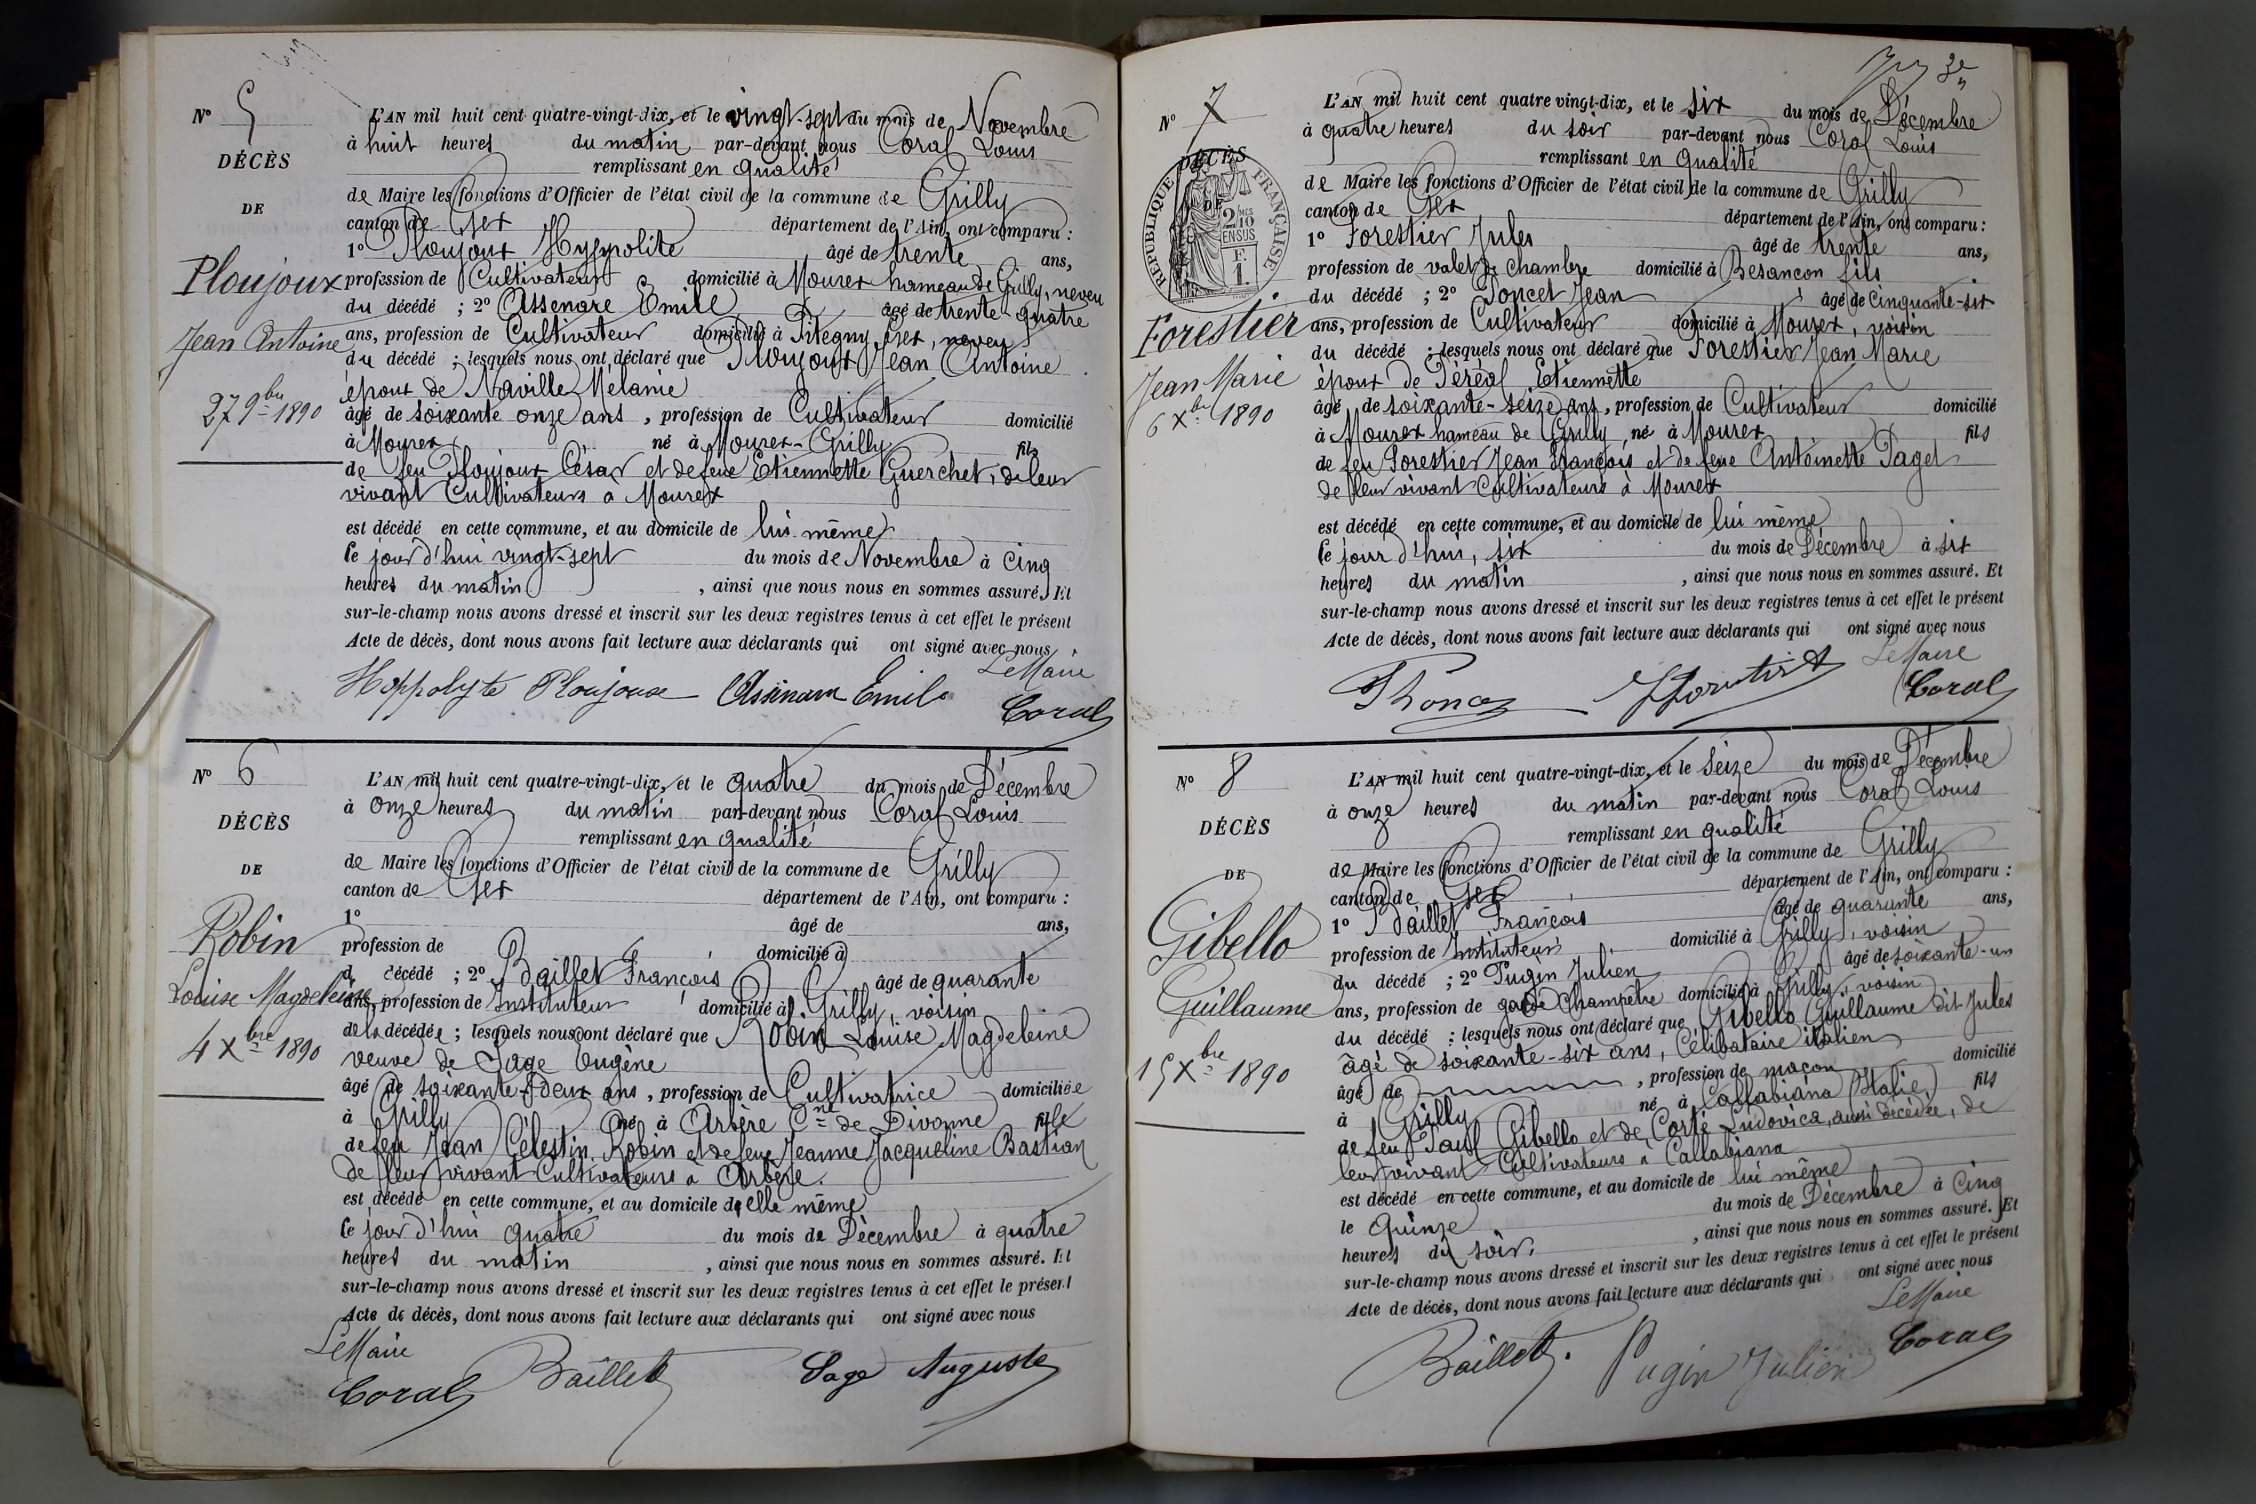 N° 5
DÉCÈS
DE
Ploujoux
Jean Antoine
27 9bre 1890
L'AN mil huit cent quatre-vingt-dix, et le vingt-sept du mois de Novembre
à huit heures du matin par-devant nous Coral Louis
remplissant en qualité
de Maire les fonctions d'Officier de l'état civil de la commune de Grilly
canton de Gex département de l'Ain, ont comparu :
1° Ploujoux Hyppolite âgé de trente ans,
profession de Cultivateur domicilié à Mourex hameau de Grilly, neveu
du décédé ; 2° Assenare Emile âgé de trente-quatre
ans, profession de Cultivateur domicilié à Pitegny Gex, neveu
du décédé ; lesquels nous ont déclaré que Ploujoux Jean Antoine
époux de Naville Mélanie
âgé de soixante onze ans, profession de Cultivateur domicilié
à Mourex né à Mourex-Grilly fils
de feu Ploujoux César et de feue Etiennette Guerchet, de leur
vivant Cultivateurs à Mourex
est décédé en cette commune, et au domicile de lui même
ce jour d'hui vingt-sept du mois de Novembre à cinq
heures du matin, ainsi que nous nous en sommes assuré. Et
sur-le-champ nous avons dressé et inscrit sur les deux registres tenus à cet effet le présent
Acte de décès, dont nous avons fait lecture aux déclarants qui ont signé avec nous
Le Maire
Hoppolyte Ploujoux Assenare Emile Coral
N° 6
DÉCÈS
DE
Robin
Louise Magdeleine
4 Xbre 1890
L'AN mil huit cent quatre-vingt-dix, et le quatre du mois de Décembre
à onze heures du matin par-devant nous Coral Louis
remplissant en qualité
de Maire les fonctions d'Officier de l'état civil de la commune de Grilly
canton de Gex département de l'Ain, ont comparu :
1° âgé de ans,
profession de domicilié à
d décédé ; 2° Baillet François âgé de quarante
ans, profession de Instituteur domicilié à Grilly, voisin
de la décédée ; lesquels nous ont déclaré que Robin Louise Magdeleine
veuve de Sage Eugène
âgé de soixante-deux ans, profession de Cultivatrice domiciliée
à Grilly né à Arbère Cne de Divonne fille
de feu Jean Célestin Robin et de feue Jeanne Jacqueline Bastian
de leur vivant Cultivateurs à Arbère.
est décédé en cette commune, et au domicile de elle même
ce jour d'hui quatre du mois de Décembre à quatre
heures du matin, ainsi que nous nous en sommes assuré. Et
sur-le-champ nous avons dressé et inscrit sur les deux registres tenus à cet effet le présent
Acte de décès, dont nous avons fait lecture aux déclarants qui ont signé avec nous
Le Maire
Coral Baillet Sage Auguste
N° 7
DÉCÈS
DE
RÉPUBLIQUE FRANÇAISE
2 MES
10
EN SUS
F.
1.
Forestier
Jean Marie
6 Xbre 1890
L'AN mil huit cent quatre vingt-dix, et le six du mois de Décembre
à quatre heures du soir par-devant nous Coral Louis
remplissant en qualité
de Maire les fonctions d'Officier de l'état civil de la commune de Grilly
canton de Gex département de l'Ain, ont comparu :
1° Forestier Jules âgé de trente ans,
profession de valet de chambre domicilié à Besançon fils
du décédé ; 2° Poncet Jean âgé de cinquante-six
ans, profession de Cultivateur domicilié à Mourex, voisin
du décédé ; lesquels nous ont déclaré que Forestier Jean Marie
époux de Péréal Etiennette
âgé de soixante-seize ans, profession de Cultivateur domicilié
à Mourex hameau de Grilly, né à Mourex fils
de feu Forestier Jean François et de feue Antoinette Paget
de leur vivant Cultivateurs à Mourex
est décédé en cette commune, et au domicile de lui même
ce jour d'hui, six du mois de Décembre à six
heures du matin, ainsi que nous nous en sommes assuré. Et
sur-le-champ nous avons dressé et inscrit sur les deux registres tenus à cet effet le présent
Acte de décès, dont nous avons fait lecture aux déclarants qui ont signé avec nous
Le Maire
Coral
N° 8
DÉCÈS
DE
Gibello
Guillaume
15 Xbre 1890
L'AN mil huit cent quatre-vingt-dix, et le seize du mois de Décembre
à onze heures du matin par-devant nous Coral Louis
remplissant en qualité
de Maire les fonctions d'Officier de l'état civil de la commune de Grilly
canton de Gex département de l'Ain, ont comparu :
1° Baillet François âgé de quarante ans,
profession de Instituteur domicilié à Grilly, voisin
du décédé ; 2° Pugin Julien âgé de soixante-un
ans, profession de garde champêtre domicilié à Grilly, voisin
du décédé ; lesquels nous ont déclaré que Gibello Guillaume dit Jules
âgé de soixante-six ans, Célibataire italien
âgé de , profession de maçon domicilié
à Grilly né à Callabiana (Italie) fils
de feu Paul Gibello et de Corte Ludovica, aussi décédée, de
leur vivant Cultivateurs à Callabiana
est décédé en cette commune, et au domicile de lui même
le quinze du mois de Décembre à cinq
heures du soir, ainsi que nous nous en sommes assuré. Et
sur-le-champ nous avons dressé et inscrit sur les deux registres tenus à cet effet le présent
Acte de décès, dont nous avons fait lecture aux déclarants qui ont signé avec nous
Le Maire
Baillet. Pugin Julien Coral